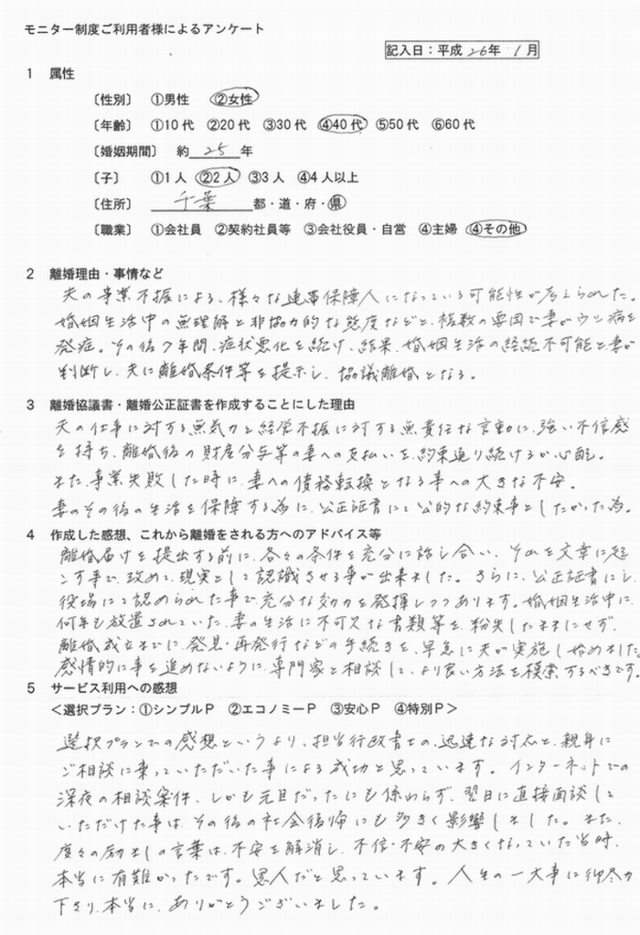 モニター制度ご利用者様によるアンケート
記入日:平成 26年 1月
1 属性
〔性別〕 ①男性 ②女性
〔年齢〕 ①10代 ②20代 ③30代 ④40代 ⑤50代 ⑥60代
〔婚姻期間〕 約 25 年
〔子〕 ①1人 ②2人 ③3人 ④4人以上
〔住所〕 千葉 都・道・府・県
〔職業〕 ①会社員 ②契約社員等 ③会社役員・自営 ④主婦 ④その他
2 離婚理由・事情など
夫の事業不振による、様々な連帯保障人になっている可能性が考えられた。
婚姻生活中の無理解と非協力的な態度などと、複数の要因で妻がウツ病を
発症。その後7年間、症状悪化を続け、結果、婚姻生活の経続不可能と妻が
判断し、夫に離婚条件等を提示し、協議離婚となる。
3 離婚協議書・離婚公正証書を作成することにした理由
夫の仕事に対する無気力と経営不振に対する無責任な言動に、強い不信感
を持ち、離婚後の財産分与等の妻への支払いを、約束通り続けるか心配。
また、事業失敗した時に、妻への債務転換となる事への大きな不安。
妻のその後の生活を保障する為に、公正証書にて公的な約束事としたかった為。
4 作成した感想、これから離婚をされる方へのアドバイス等
離婚届けを提出する前に、各々の条件を充分に話し合い、それを文章に起
こす事で、改めて、現実として認識させる事が出来ました。さらに、公正証書にし、
役場にて認められた事で、充分な効力を発揮しつつあります。婚姻生活中に、
何年も放置されていた、妻の生活に不可欠な書類等を、紛失したままにせず、
離婚成立までに、発見・再発行などの手続きを、早急に夫が実施し始めました。
感情的に事を進めないように、専門家と相談して、より良い方法を模索するべきです。
5 サービス利用への感想
<選択プラン:①シンプルP ②エコノミーP ③安心P ④特別P>
選択プランでの感想というより、担当行政書士の、迅速な対応と、親身に
ご相談に乗っていただいた事による成功と思っています。インターネットでの
深夜の相談案件、しかも元旦だったにも係わらず、翌日に直接面談して
いただけた事は、その後の社会復帰にも多きく影響しました。また、
度々の励ましの言葉は、不安を解消し、不信・不安の大きくなっていた当時、
本当に有難かったです。恩人だと思っています。人生の一大事に御尽力
下さり、本当に、ありがとうございました。